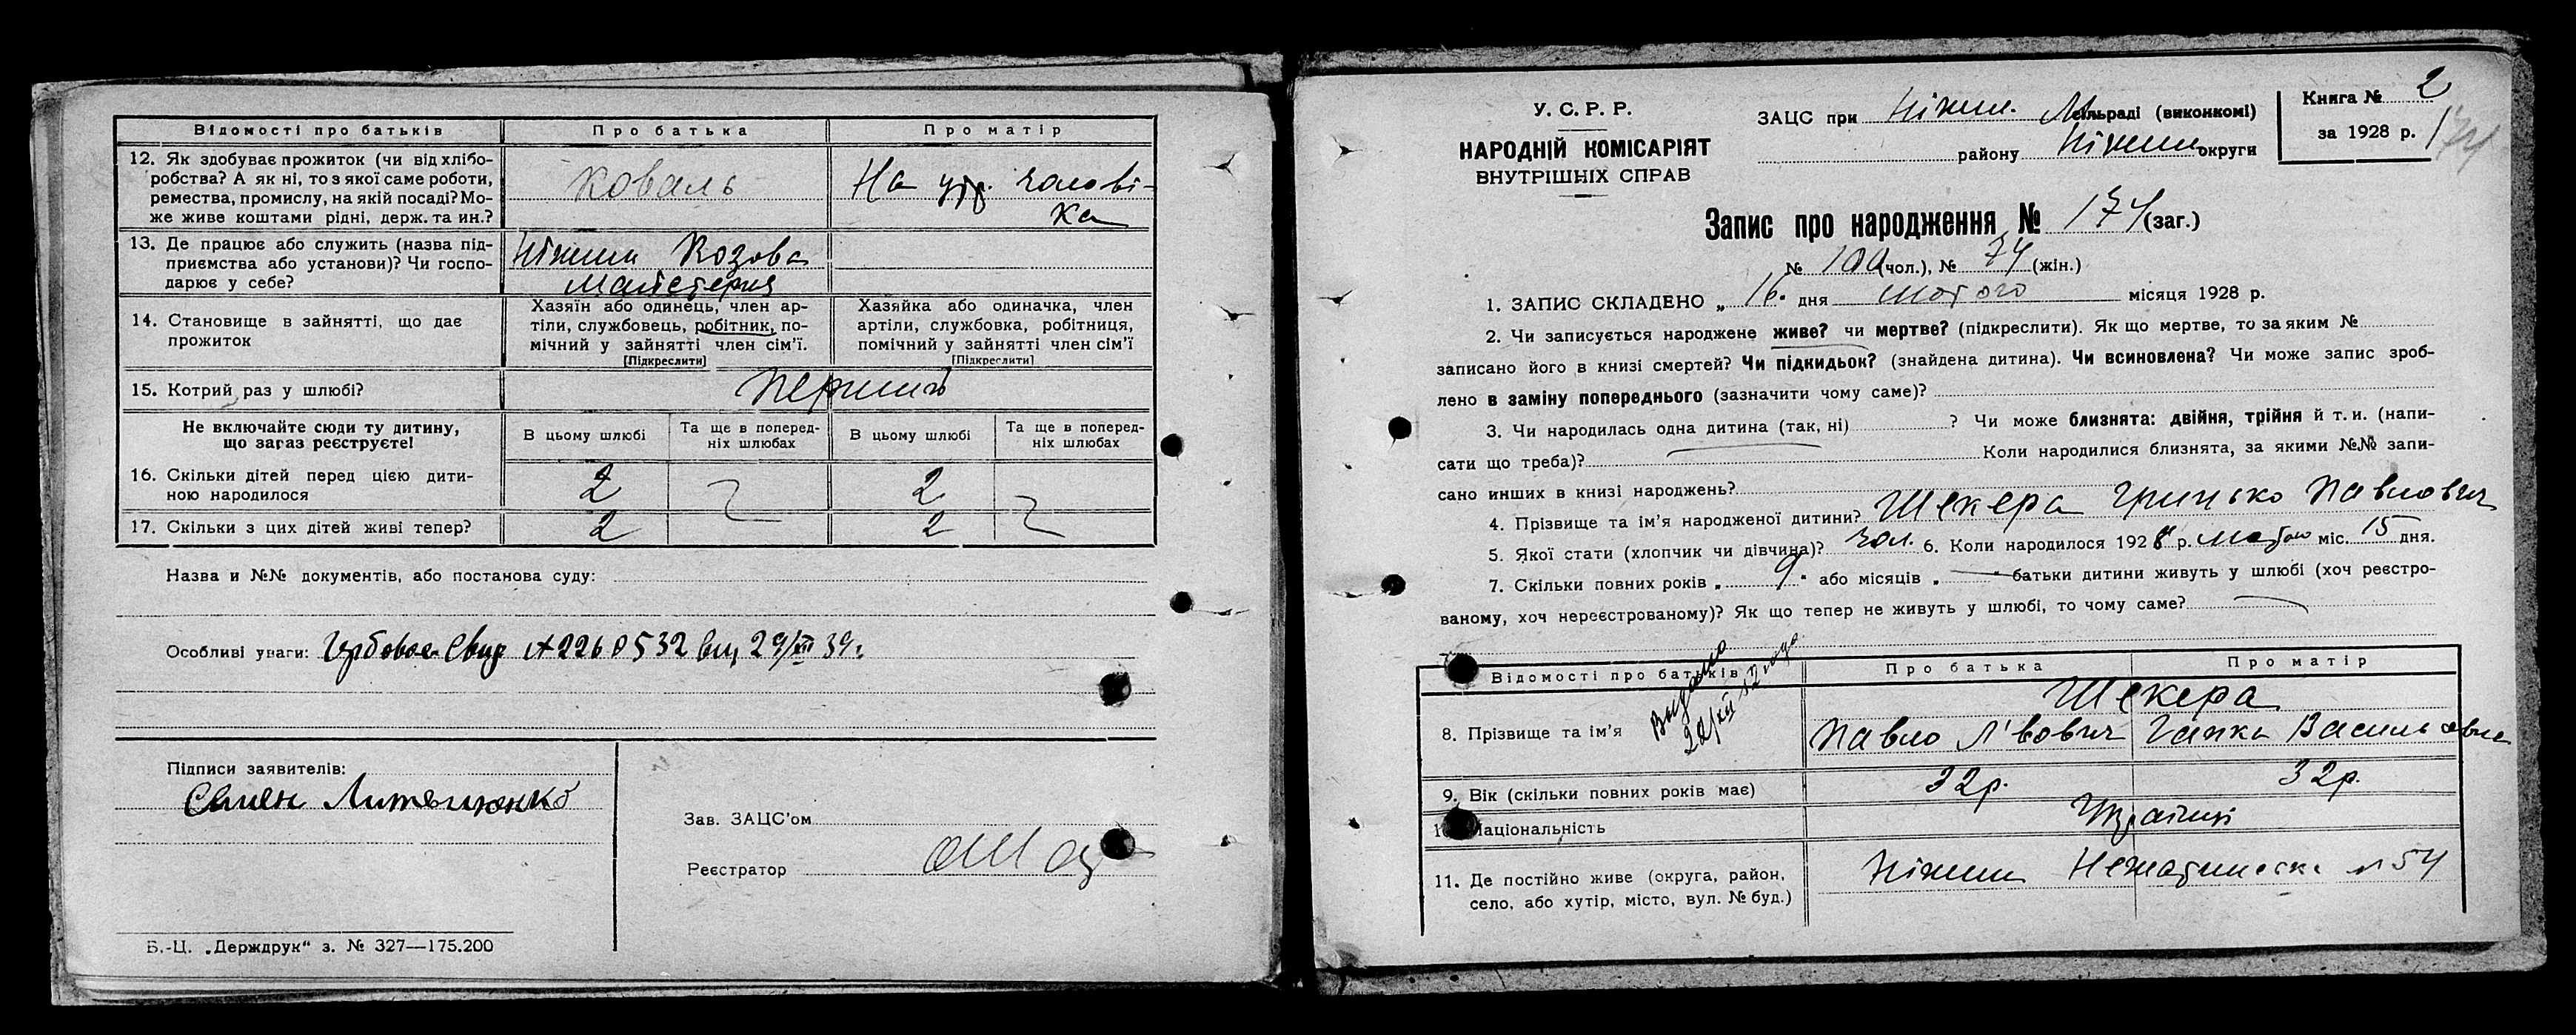 Відомості про батьків Про батька Про матір
12. Як здобуває прожиток (чи від хлібо-
робства? А як ні, то з якої саме роботи,
ремества, промислу, на якій посаді? Мо-
же живе коштами рідні, держ. та ин.?
Коваль
На утр. чолові-
ка
13. Де працює або служить (назва під-
приємства або установи)? Чи госпо-
дарює у себе?
Ніжин
Майстерня
14. Становище в зайнятті, що дає
прожиток
Хазяїн або одинець, член ар-
тіли, службовець, робітник, по-
мічний у зайнятті член сім'ї.
[Підкреслити]
Хазяйка або одиначка, член
артіли, службовка, робітниця,
помічний у зайнятті член сім'ї
[Підкреслити]
15. Котрий раз у шлюбі? Перший
Не включайте сюди ту дитину,
що зараз реєструєте!
В цьому шлюбі
Та ще в поперед-
ніх шлюбах
В цьому шлюбі
Та ще в поперед-
ніх шлюбах
16. Скільки дітей перед цією дити-
ною народилося
2 2
17. Скільки з цих дітей живі тепер? 2 2
Назва и №№ документів, або постанова суду:
Особливі уваги: Гербовое Свид А2260532 29/XII 39г.
Підписи заявителів:
Семен Литвиненко
Зав. ЗАЦС'ом
Реєстратор
Б.-Ц. „Держдрук“ з. № 327—175.200
У. С. Р. Р.
НАРОДНІЙ КОМІСАРІЯТ
ВНУТРІШНІХ СПРАВ
ЗАЦС при Ніжин. М сільраді (виконкомі)
району Ніжин округи
Книга № 2
за 1928 р.
174
Запис про народження № 174 (заг.)
№ 100 (чол.), № 74 (жін.)
1. ЗАПИС СКЛАДЕНО „ 16. дня лютого місяця 1928 р.
2. Чи записується народжене живе? чи мертве? (підкреслити). Як що мертве, то за яким №
записано його в книзі смертей? Чи підкидьок? (знайдена дитина). Чи всиновлена? Чи може запис зроб-
лено в заміну попереднього (зазначити чому саме)?
3. Чи народилась одна дитина (так, ні) ? Чи може близнята: двійня, трійня й т. и. (напи-
сати що треба)? Коли народилися близнята, за якими №№ запи-
сано инших в книзі народжень?
4. Прізвище та ім'я народженої дитини? Шекера Гринько Павлович
5. Якої стати (хлопчик чи дівчина)? чол. 6. Коли народилося 1928 р. лютого міс. 15 дня.
7. Скільки повних років „ 9 “ або місяців „ “ батьки дитини живуть у шлюбі (хоч реєстро-
ваному, хоч нереєстрованому)? Як що тепер не живуть у шлюбі, то чому саме?
Відомості про батьків Про батька Про матір
Выдано
Шекера
8. Прізвище та ім'я Павло Львович Гапка Васильовна
9. Вік (скільки повних років має) 32р. 32р.
10. Національність Українці
11. Де постійно живе (округа, район,
село, або хутір, місто, вул. № буд.)
Ніжин № 54